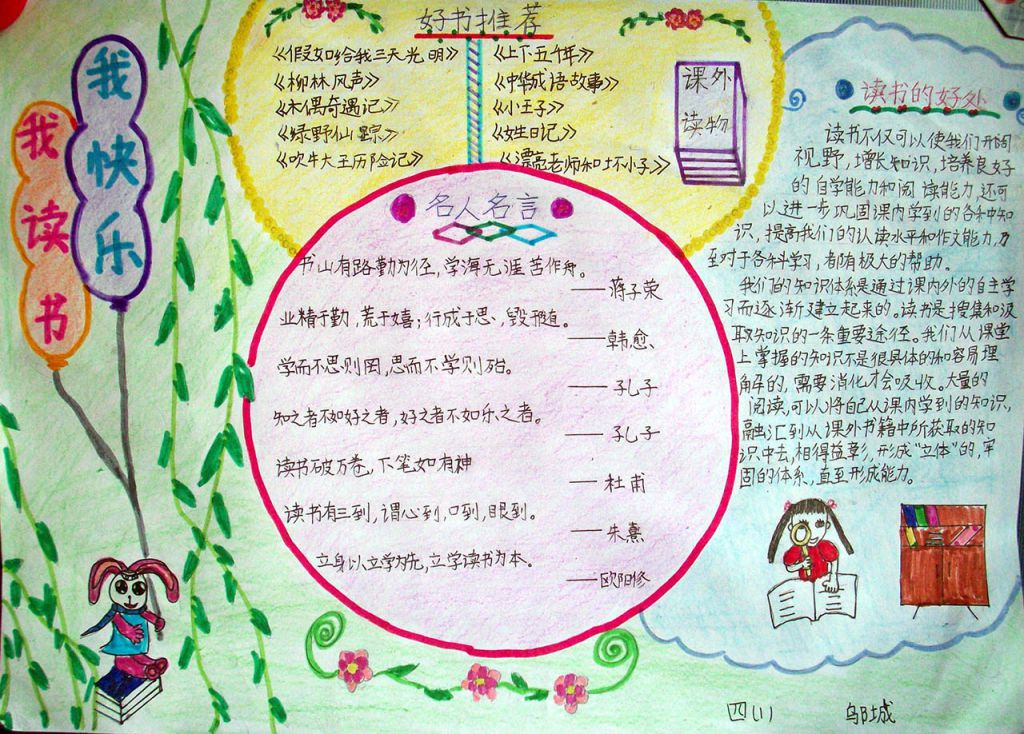 我读书
我快乐
好书推荐
《假如给我三天光明》
《柳林风声》
《木偶奇遇记》
《绿野仙踪》
《吹牛大王历险记》
《上下五千年》
《中华成语故事》
《小王子》
《女生日记》
《漂亮老师和坏小子》
课外
读物
名人名言
书山有路勤为径,学海无涯苦作舟。
——蒋子荣
业精于勤,荒于嬉;行成于思,毁于随。
——韩愈
学而不思则罔,思而不学则殆。
——孔子
知之者不如好之者,好之者不如乐之者。
——孔子
读书破万卷,下笔如有神
——杜甫
读书有三到,谓心到,口到,眼到。
——朱熹
立身以立学为先,立学读书为本。
——欧阳修
读书的好处
读书不仅可以使我们开阔
视野,增长知识,培养良好
的自学能力和阅读能力,还可
以进一步巩固课内学到的各种知
识,提高我们的认读水平和作文能力,乃
至对于各科学习,都有极大的帮助。
我们的知识体系是通过课内外的自主学
习而逐渐建立起来的。读书是搜集和汲
取知识的一条重要途径。我们从课堂
上掌握的知识不是很具体的和容易理
解的,需要消化才会吸收。大量的
阅读,可以将自己从课内学到的知识,
融汇到从课外书籍中所获取的知
识中去,相得益彰,形成“立体”的,牢
固的体系,直至形成能力。
四(1) 邬城